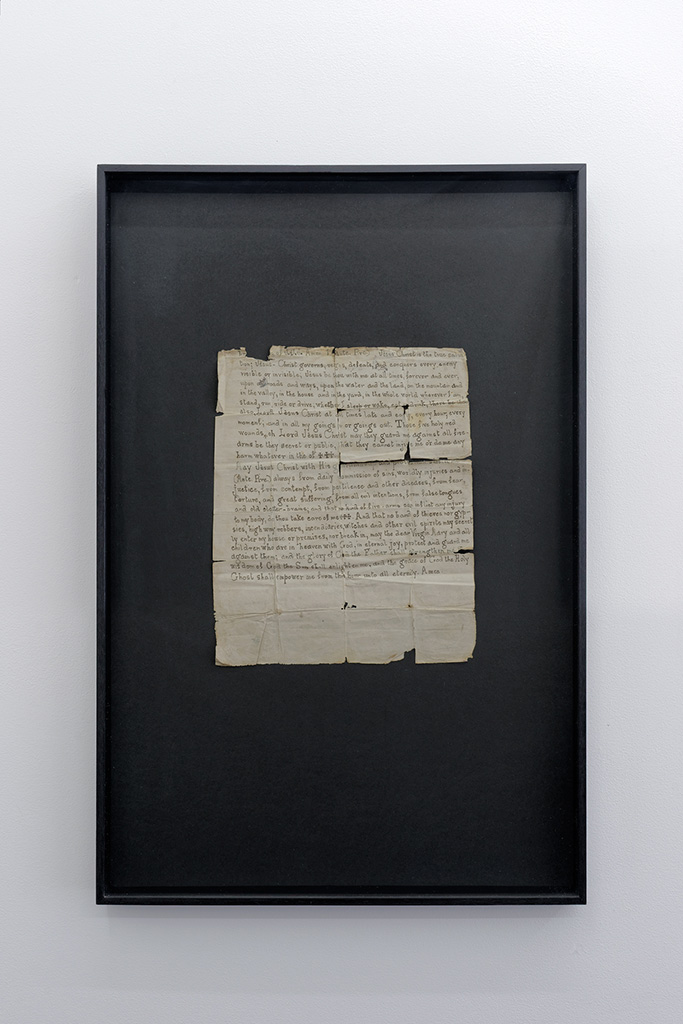 Jesus Christ is the true
Jesus Christ governs, defends, and conquers every enemy
visible or invisible. Jesus be thou with me at all times, forever and ever,
upon all roads and ways, upon the water and the land, in the mountain and
in the valley, in the house and in the yard, in the whole world wherever I am,
stand, run, ride or drive, whether I sleep or wake, eat or drink, there be thou
also, Lord Jesus Christ at all times late and early, every hour, every
moment; and in all my goings in or goings out. Those five holy red
wounds, oh Lord Jesus Christ may they guard me against all fire-
arms be they secret or public, that they cannot injure me or do me any
harm whatever in the of ✝✝✝
May Jesus Christ with His
always from daily commission of sins, worldly injuries and in-
justice, from contempt, from pestilence and other diseases, from fear,
torture, and great suffering, from all evil intentions, from false tongues
and old clatter-brains; and that no kind of fire-arms can inflict any injury
to my body, do thou take care of me ✝✝✝ And that no band of thieves nor gyp-
sies, highway robbers, incendiaries, witches and other evil spirits may secret
ly enter my house or premises, nor break in; may the dear Virgin Mary and all
children who are in heaven with God, in eternal joy, protect and guard me
against them; and the glory of God the Father shall strengthen me, the
wisdom of God the Son shall enlighten me, and the grace of God the Holy
Ghost shall empower me from this hour unto all eternity. Amen